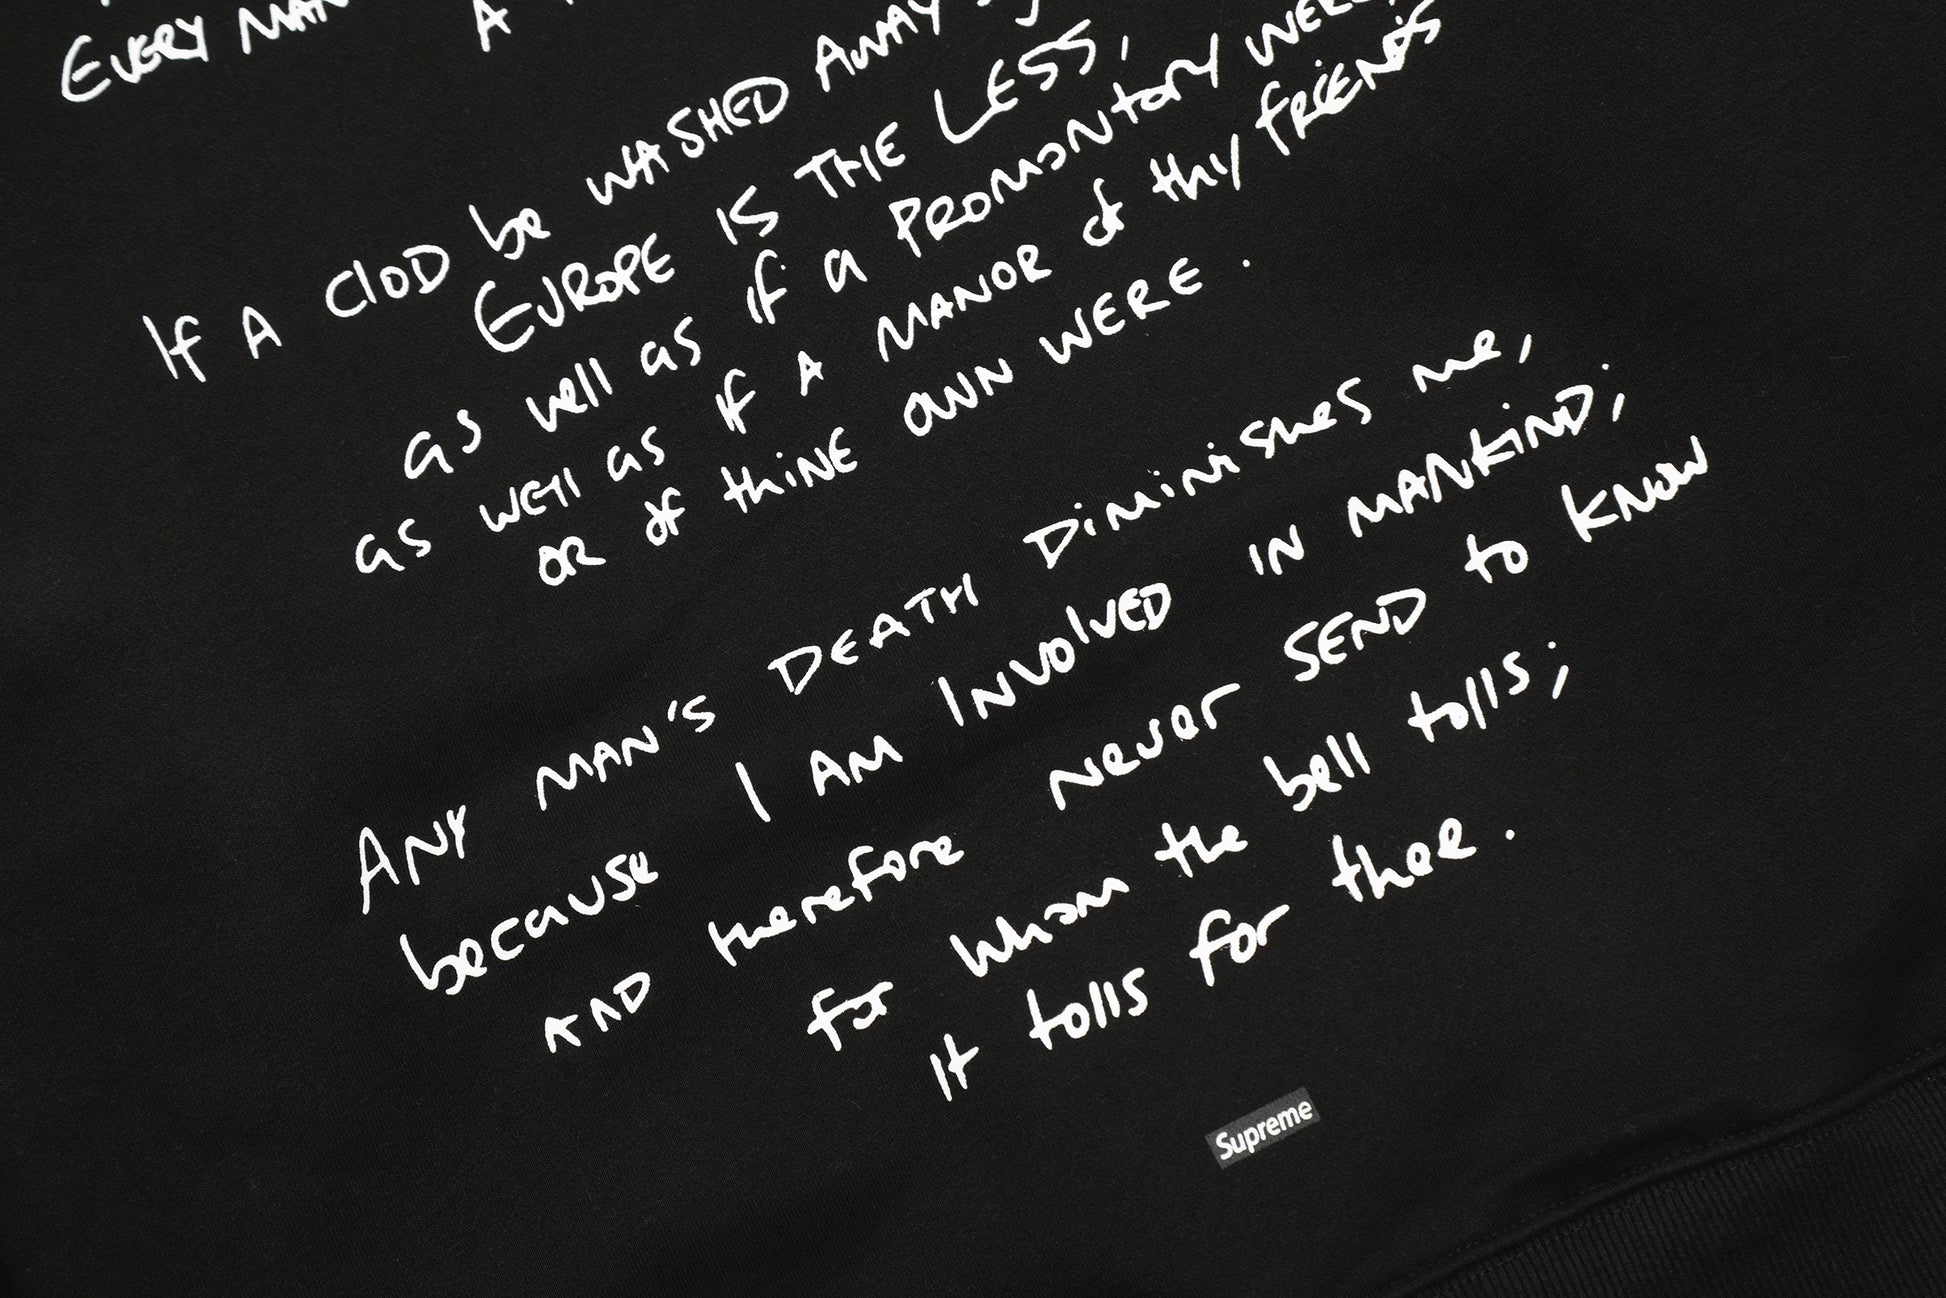 EVERY MAN
A
If A ClOD be WASHED AWAY
EUROPE IS THE LESS,
as well as if a PROMONTORY WERE
as WEll as if A MANOR of thy FRIENDS
OR of thiNE OWN WERE.
ANY MAN'S DEATH DiMiNiSHes me,
because I AM INVOlVED IN MANKiND;
AND therefore Never SEND to KNOW
for whom the bell tolls;
It tolls for thee.
Supreme